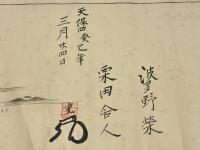 波多野柴
栗田舎人
天保四癸巳年
三月廿四日